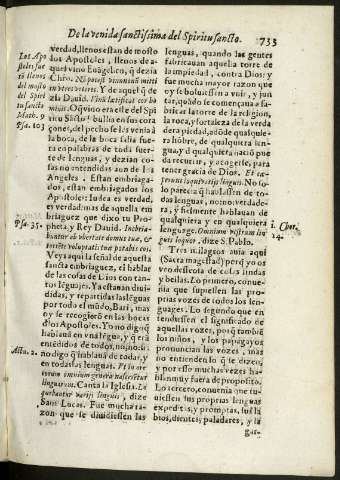 De la venida sanctissima del Spiritu sancto. 733
Los Apo-
stoles fue
rō llenos
del mosto
del Spiri
tu sancto
Math. 9
Psa. 103
verdad, llenos estan de mosto
los Apostoles, llenos de a-
quel vino Euāgelico, q̄ dezia
Chřo. Ni ponūt vinum nouū
in vteres veteres. Y de aquel q̄ de
zia Dauid. Vinū lætificat cor ho
minis. O q̄ vino era este del Spi
ritu Sācto! bullia en sus cora
çones, del pecho se les venia à
la boca, de la boca salia fuera
en palabras de toda suer-
te de lenguas, y dezian co-
sas no entendidas aun de los
Angeles. Estan embriaga-
dos, estan embriagados los
Apostoles: Iudea es verdad,
Psa. 35.
es verdad mas de aquella em
briaguez que dixo tu Pro-
pheta, y Rey Dauid. Inebria-
buntur ab vbertate domus tuæ, &
torrēte voluptatis tuæ potabis eos.
Veys aqui la señal de aquesta
sancta embriaguez, el hablar
de las cosas de Dios con tan-
tos lēguajes. Ya estauā diui-
didas, y repartidas las lēguas
por todo el mūdo, Bari, mas
oy se recogierō en las bocas
d'los Apostoles. Yo no digo q̄
hablauā en vna lēgua, y q̄ erā
Actu. 2.
entēdidos de todos, no, no: si
no digo q̄ hablauā de todas, y
en todas las lenguas. Et in ser-
uorum omnium genera nascētur
linguarum. Canta la Iglesia. Lo
quebantur varijs linguis, dize
San Lucas. Fue mucha ra-
zon que se diuidiessen las
lenguas, quando las gentes
fabricauan aquella torre de
la impiedad, contra Dios: y
fue mucha mayor razon que
oy se boluiessen a vnir, y jun-
tar, quando se començò à fa-
bricar la torre de la religion,
la roca, y fortaleza de la verda
dera piedad, adōde qualquie-
ra hōbre, de qualquiera len-
gua, y d' qualquiera naciō pue
da recurrir, y acogerse, para
tenergracia de Dios. Et cæ-
perunt loqui varijs linguis. No so-
lo parecia q̄ hablassen de to-
das lenguas, no mo: verdade-
ra, y fielmente hablauan de
qualquiera, y en qualquiera
1. Cor.
14.
lenguage. Omnium vestrum lin-
guis loquor, dize S. Pablo.
Tres milagros auia aqui
(Sacra magestad) pero yo os
veo deseosa de cosas lindas
y bellas. Lo primero, conue-
nia que supiessen las pro-
prias vozes de todos los len-
guages. Lo segundo que en
tendiessen el significado de
aquellas vozes, porq̄ tambiē
los niños, y los papagayos
pronuncian las vozes, mas
no entienden lo q̄ se dizen,
y por esso muchas vezes ha-
blan muy fuera de proposito.
Lo tercero, conuenia que tu-
uiessen sus proprias lenguas
expeditas, y promptas, sus la
bios, dientes, paladares, y la
gar-